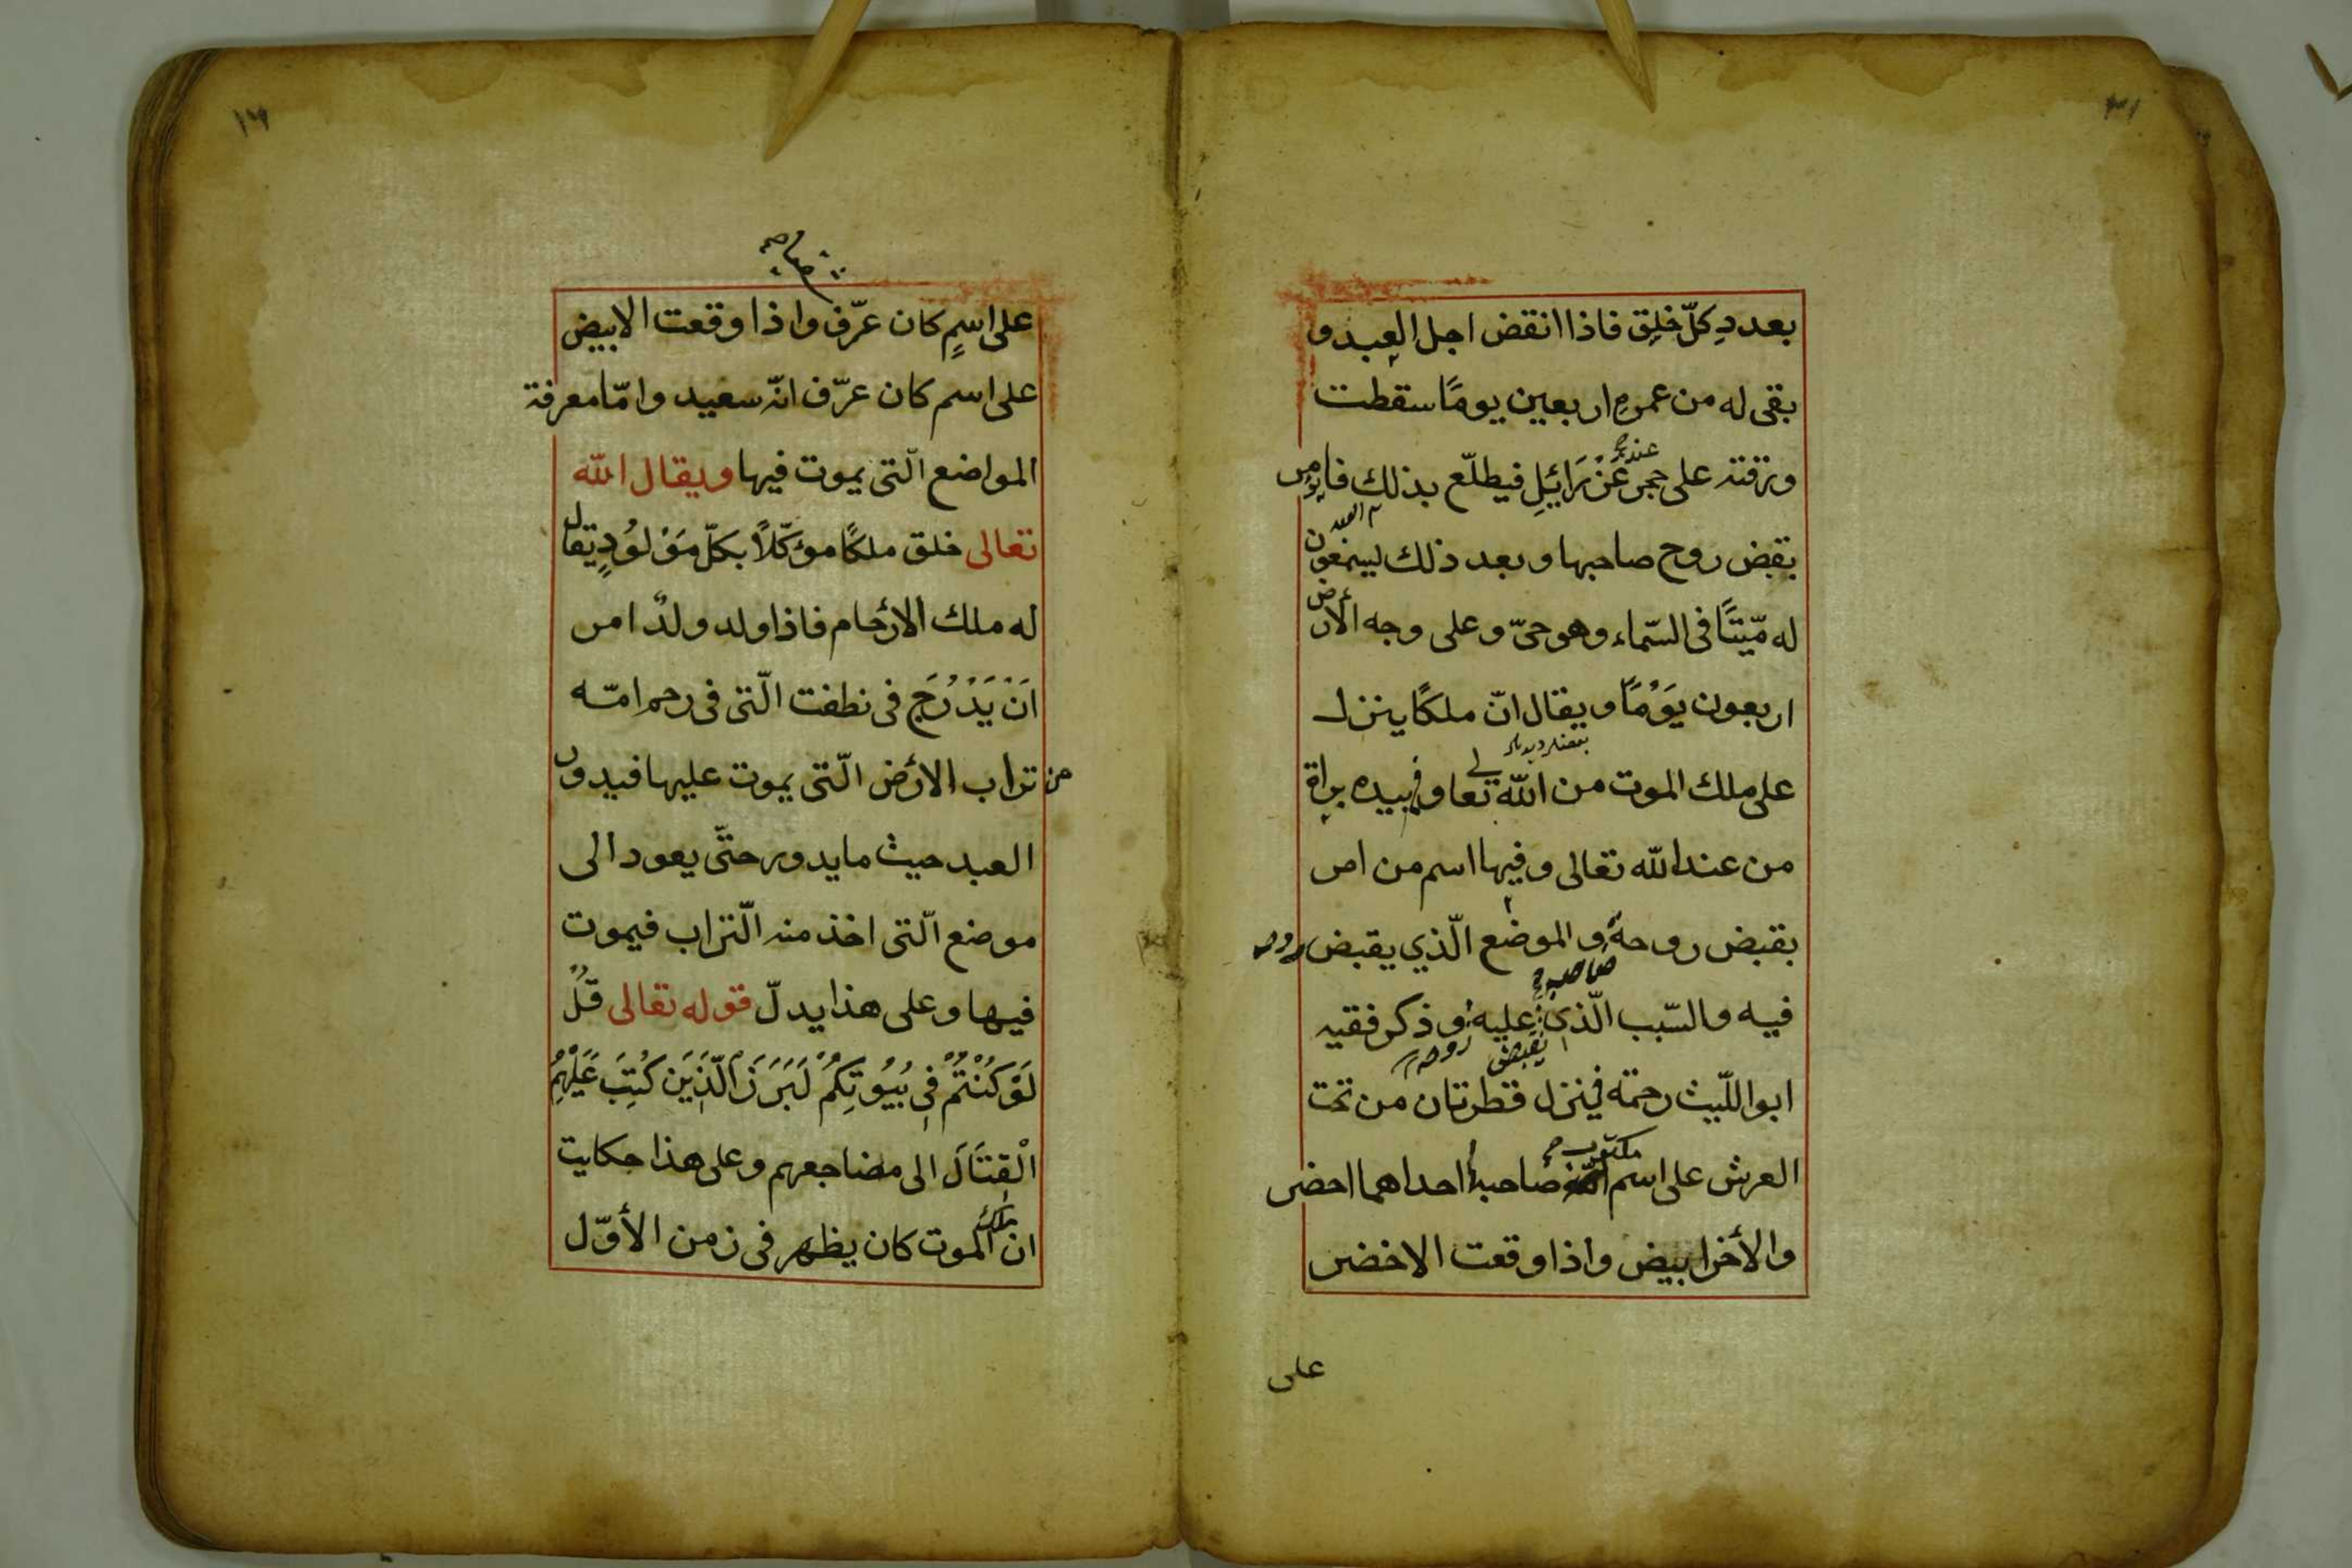 بعددِ كلّ خلقٍ فاذا انقض اجل العبد و
بقى له من عمرهِ اربعين يومًا سقطت
ورقته على حجر عَزْرَائيلِ فيطلّع بذلك فامر
عنده
العبد
بقبض روح صاحبها وبعد ذلك ليسمّعون
له ميّتًا فى السّماء وهو حىّ وعلى وجه الأرض
اربعون يَوْمًا ويقال انّ ملكًا ينزل
على ملك الموت من اللّه تعالى وفى بيده براة
من عند اللّه تعالى وفيها اسم من امر
بقبض روحهُ والموضع الّذي يقبض روحه
صاحبه
فيه والسّبب الّذي عليه وذكر فقيه
يقبض روحه
ابو اللّيث رحمته فينزل قطرتان من تحت
مكتوب
العرش على اسم صاحبهُ احداهما اخضر
والأخر ابيض واذا وقعت الاخضر
على
١٦
على اسمٍ كان عرّف واذا وقعت الابيض
على اسم كان عرّف انّه سعيد وامّا معرفة
المواضع الّتى يموت فيها ويقال اللّه
تعالى خلق ملكًا مؤكّلاً بكلّ مَوْلوُدٍ يقال
له ملك الارْحام فاذا ولد ولدٌ امر
اَنْ يَدْرُجَ فى نطفت الّتى فى رحم امّه
من تراب الارْض الّتى يموت عليها فيدور
العبد حيث ما يدور حتّى يعود الى
موضع الّتى اخذ منه الّتراب فيموت
فيها وعلى هذا يدلّ قوله تعالى قُلْ
لَوْ كُنْتُمْ فِى بُيُوتِكُمْ لَبَرَزَ الَّذَيِنَ كُتِبَ عَلَيْهِمُ
الْقِتَالَ الى مضاجعهم وعلى هذا حكايت
ملك
ان الموت كان يظهر فى زمن الأوّل